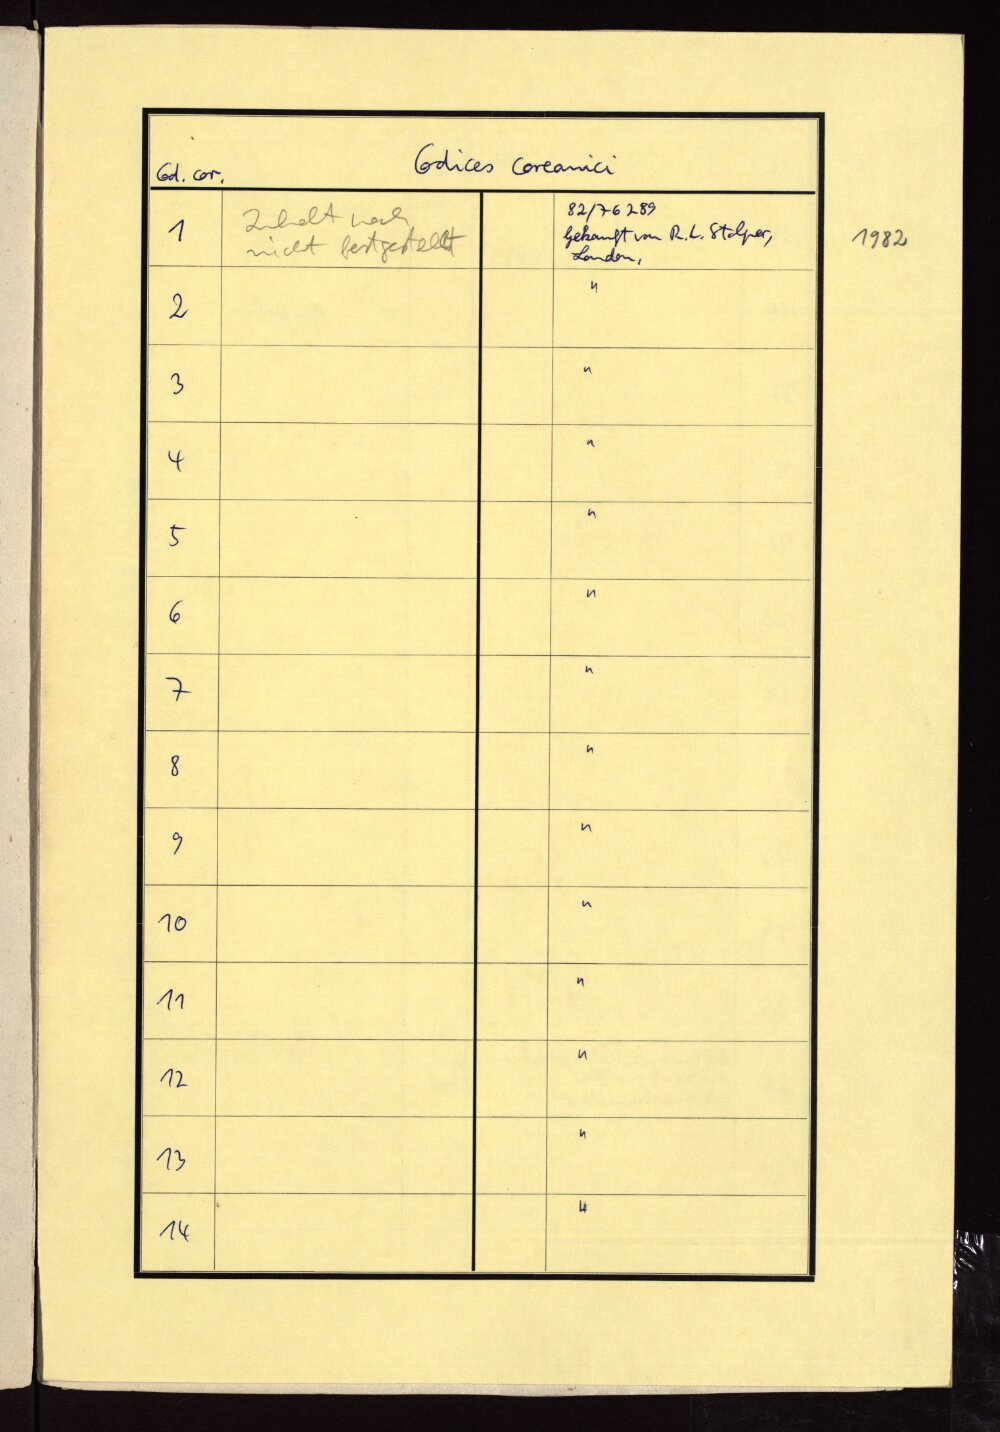 Codices coreanici
Cod. cor.
1 Inhalt noch
nicht festgestellt
82/76289
Gekauft von R. L. Stolper,
London,
1982
2 "
3 "
4 "
5 "
6 "
7 "
8 "
9 "
10 "
11 "
12 "
13 "
14 "